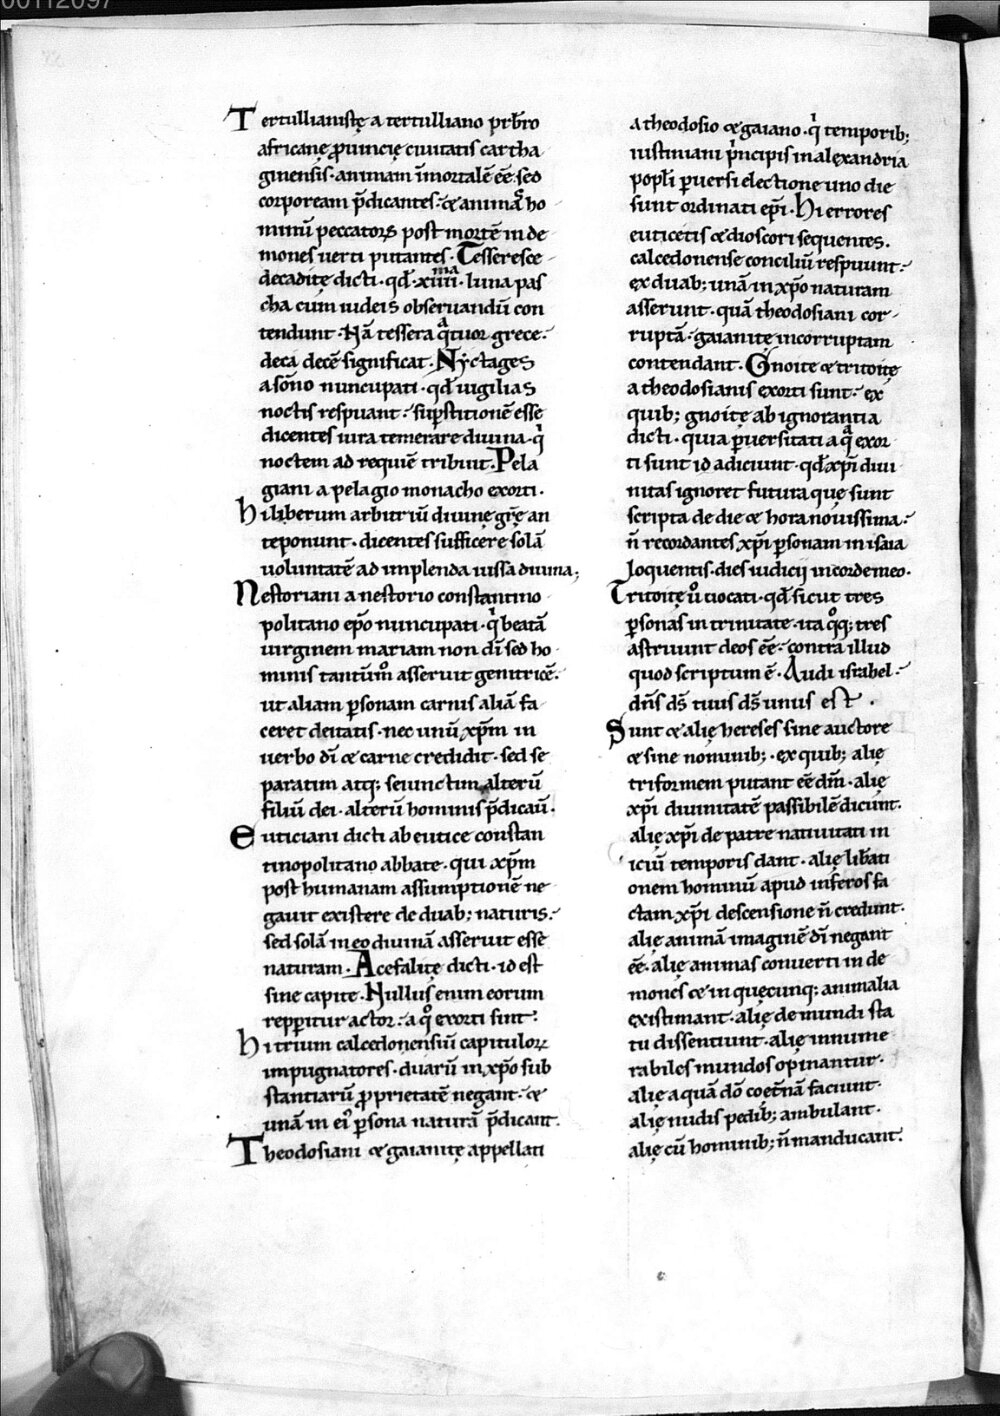 00112097
Tertullianistę a tertulliano prb̅ro
africanę ꝓuincię ciuitatis cartha
ginensis · animam īmortalē eē · sed
corpoream p̄dicantes · & animā ho
minū peccatorꝝ post mortē in de
mones uerti putantes · Tesseresce
decaditę dicti · qđ · xiiii^ma · luna pas
cha cum iudeis obseruandū con
tendunt · Nā tessera q^atuor grece ·
deca decē significat · Nyctages
a sōno nuncupati · qđ uigilias
noctis respuant · suꝑstitionē esse
dicentes iura temerare diuina · q^i
noctem ad requiē tribuit · Pela
giani a pelagio monacho exorti ·
hi liberum arbitriū diuinę gr̄ę an
teponunt · dicentes sufficere solā
uoluntatē ad implenda iussa diuina ;
Nestoriani a nestorio constantino
politano ep̄o nuncupati · q^i beatā
uirginem mariam non dī sed ho
minis tantūm̊ asseruit genitricē ·
ut aliam ꝑsonam carnis aliā fa
ceret deitatis · nec unū xp̄m in
uerbo dī & carne credidit · sed se
paratim atq; seiunctim alterū
filiū dei · alterū hominis p̄dicaū ·
Euticiani dicti ab eutice constan
tinopolitano abbate · qui xp̄m
post humanam assumptionē ne
gauit existere de duab; naturis ·
sed solā in eo diuinā asseruit esse
naturam · Acefalitę dicti · id est
sine capite · Nullus enim eorum
repꝑitur actor · a q^o exorti sint ·
hi trium calcedonensiū capitulorꝝ
impugnatores · duarū in xp̄o sub
stantiarū ꝓprietatē negant · &
unā in ei' ꝑsona naturā p̄dicant ·
Theodosiani & gaianitę appellati
a theodosio & gaiano · q^i temporib;
iustiniani p^incipis in alexandria
popłi ꝑuersi electione uno die
sunt ordinati ep̄i · hi errores
euticetis & dioscori sequentes ·
calcedonense conciliū respuunt ·
ex duab; unā in xp̄o naturam
asserunt · quā theodosiani cor
ruptā · gaianitę incorruptam
contendant · Gnoitę & tritoitę
a theodosianis exorti sunt · ex
quib; gnoitę ab ignorantia
dicti · quia ꝑuersitati a q^a exor
ti sunt id adiciunt · qđ xp̄i diui
nitas ignoret futura quę sunt
scripta de die & hora nouissima ·
n̄ recordantes xp̄i ꝑsonam in isaia
loquentis · dies iudicii in corde meo ·
Tritoitę ū uocati · qđ sicut tres
ꝑsonas in trinitate · ita q^oq; tres
astruunt deos eē · contra illud
quod scriptum ē · Audi israhel ·
dn̄s d̄s tuus d̄s unus est ·
Sunt & alię hereses sine auctore
& sine nominib; · ex quib; alię
triformem putant eē dm̄ · alię
xp̄i diuinitatē passibilē dicunt ·
alię xp̄i de patre natiuitati in
iciū temporis dant · alię lib̄ati
onem hominū apud inferos fa
ctam xp̄i descensione n̄ credunt ·
alię animā imaginē dī negant
eē · alię animas conuerti in de
mones & in quęcunq; animalia
existimant · alię de mundi sta
tu dissentiunt · alię innume
rabiles mundos opinantur ·
alię aquā dō coet̄nā faciunt ·
alię nudis pedib; ambulant ·
alię cū hominib; n̄ manducant ·